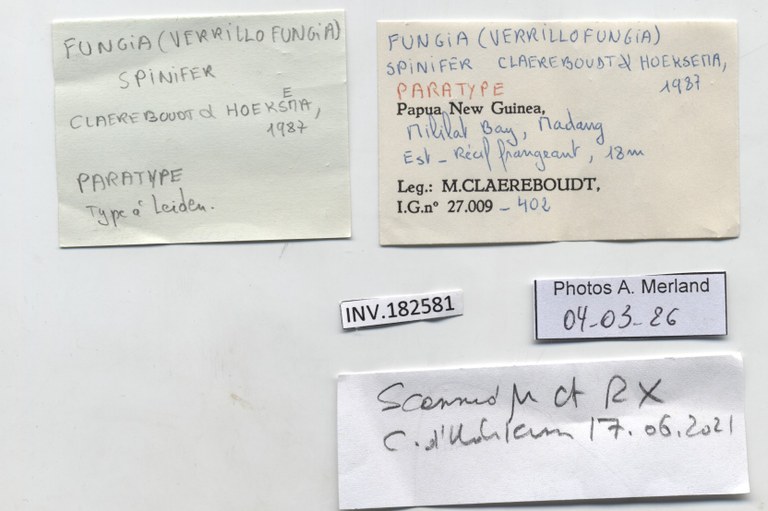 FUNGIA (VERRILLO FUNGIA)
SPINIFER
CLAEREBOUDT & HOEKSEMA,
1987
PARATYPE
Type à Leiden.
FUNGIA (VERRILLOFUNGIA)
SPINIFER CLAEREBOUDT & HOEKSEMA,
PARATYPE 1987
Papua New Guinea,
Mililat Bay, Madang
Est - Récif frangeant, 18m
Leg.: M.CLAEREBOUDT,
I.G.nº 27.009 - 402
INV.182581
Photos A. Merland
04-03-26
Scanned µ ct RX
17.06.2021